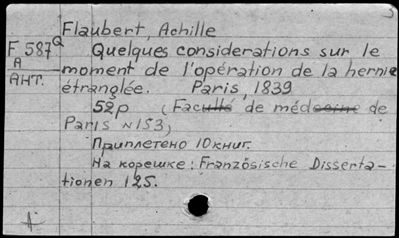 Flaubert, Achille
F 587Q
A
АНТ.
Quelques considerations sur le
moment de l'opération de la hernie
étranglée. Paris, 1839
52p (Faculté de médecine de
Paris N153)
Приплетено 10 книг.
На корешке: Französische Disserta-
tionen 125.